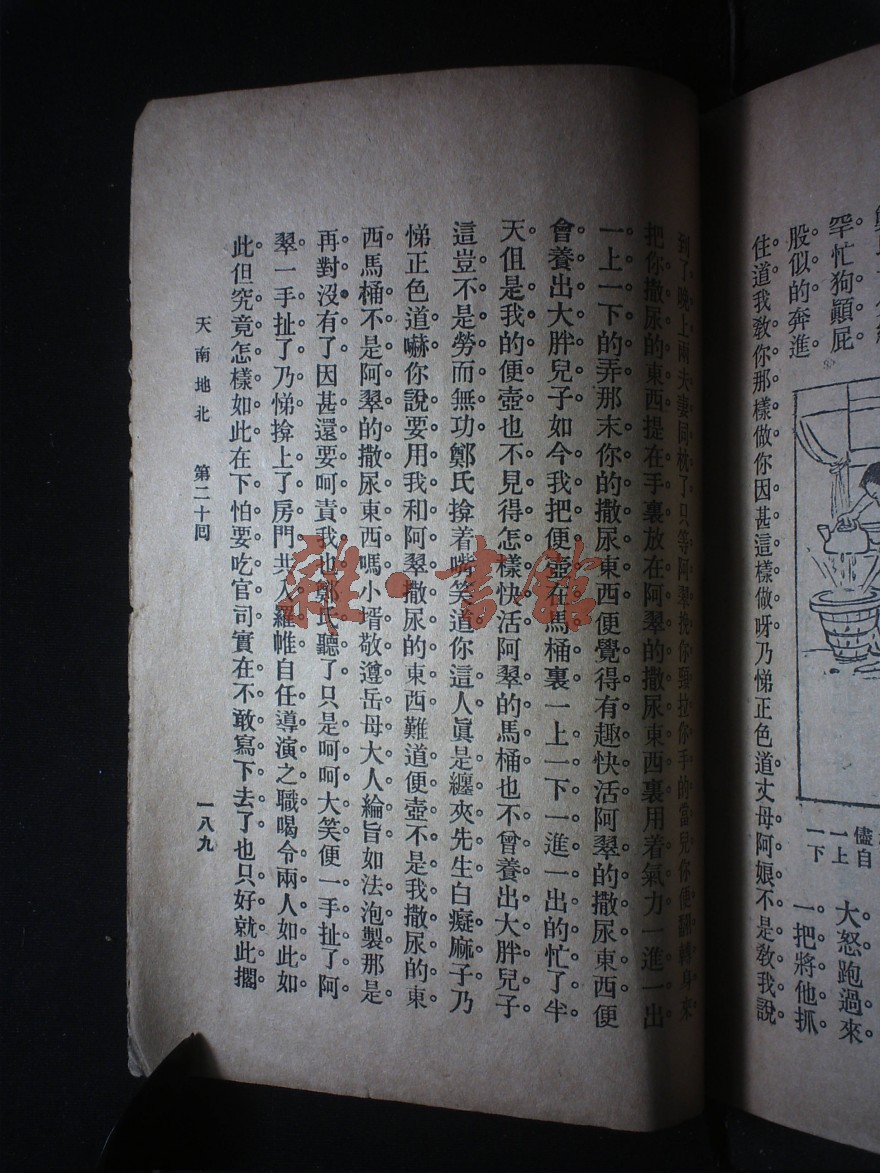 罕忙狗顚屁
股似的奔進
儘自
一上
一下
大怒跑過來
一把將他抓
住道我敎你那樣做你因甚這樣做呀乃悌正色道丈母阿娘不是敎我說
到了晚上兩夫妻同枕了只等阿翠挽你頸拉你手的當兒你便翻轉身來
把你撒尿的東西提在手裏放在阿翠的撒尿東西裏用着氣力一進一出
一上一下的弄那末你的撒尿東西便覺得有趣快活阿翠的撒尿東西便
會養出大胖兒子如今我把便壺在馬桶裏一上一下一進一出的忙了半
天但是我的便壺也不見得怎樣快活阿翠的馬桶也不曾養出大胖兒子
這豈不是勞而無功鄭氏揜着嘴笑道你這人眞是纏夾先生白癡麻子乃
悌正色道嚇你說要用我和阿翠撒尿的東西難道便壺不是我撒尿的東
西馬桶不是阿翠的撒尿東西嗎小壻敬遵岳母大人綸旨如法泡製那是
再對沒有了因甚還要呵責我也鄭氏聽了只是呵呵大笑便一手扯了阿
翠一手扯了乃悌揜上了房門共入羅帷自任導演之職喝令兩人如此如
此但究竟怎樣如此在下怕要吃官司實在不敢寫下去了也只好就此擱
天南地北 第二十回 一八九
雜·書館